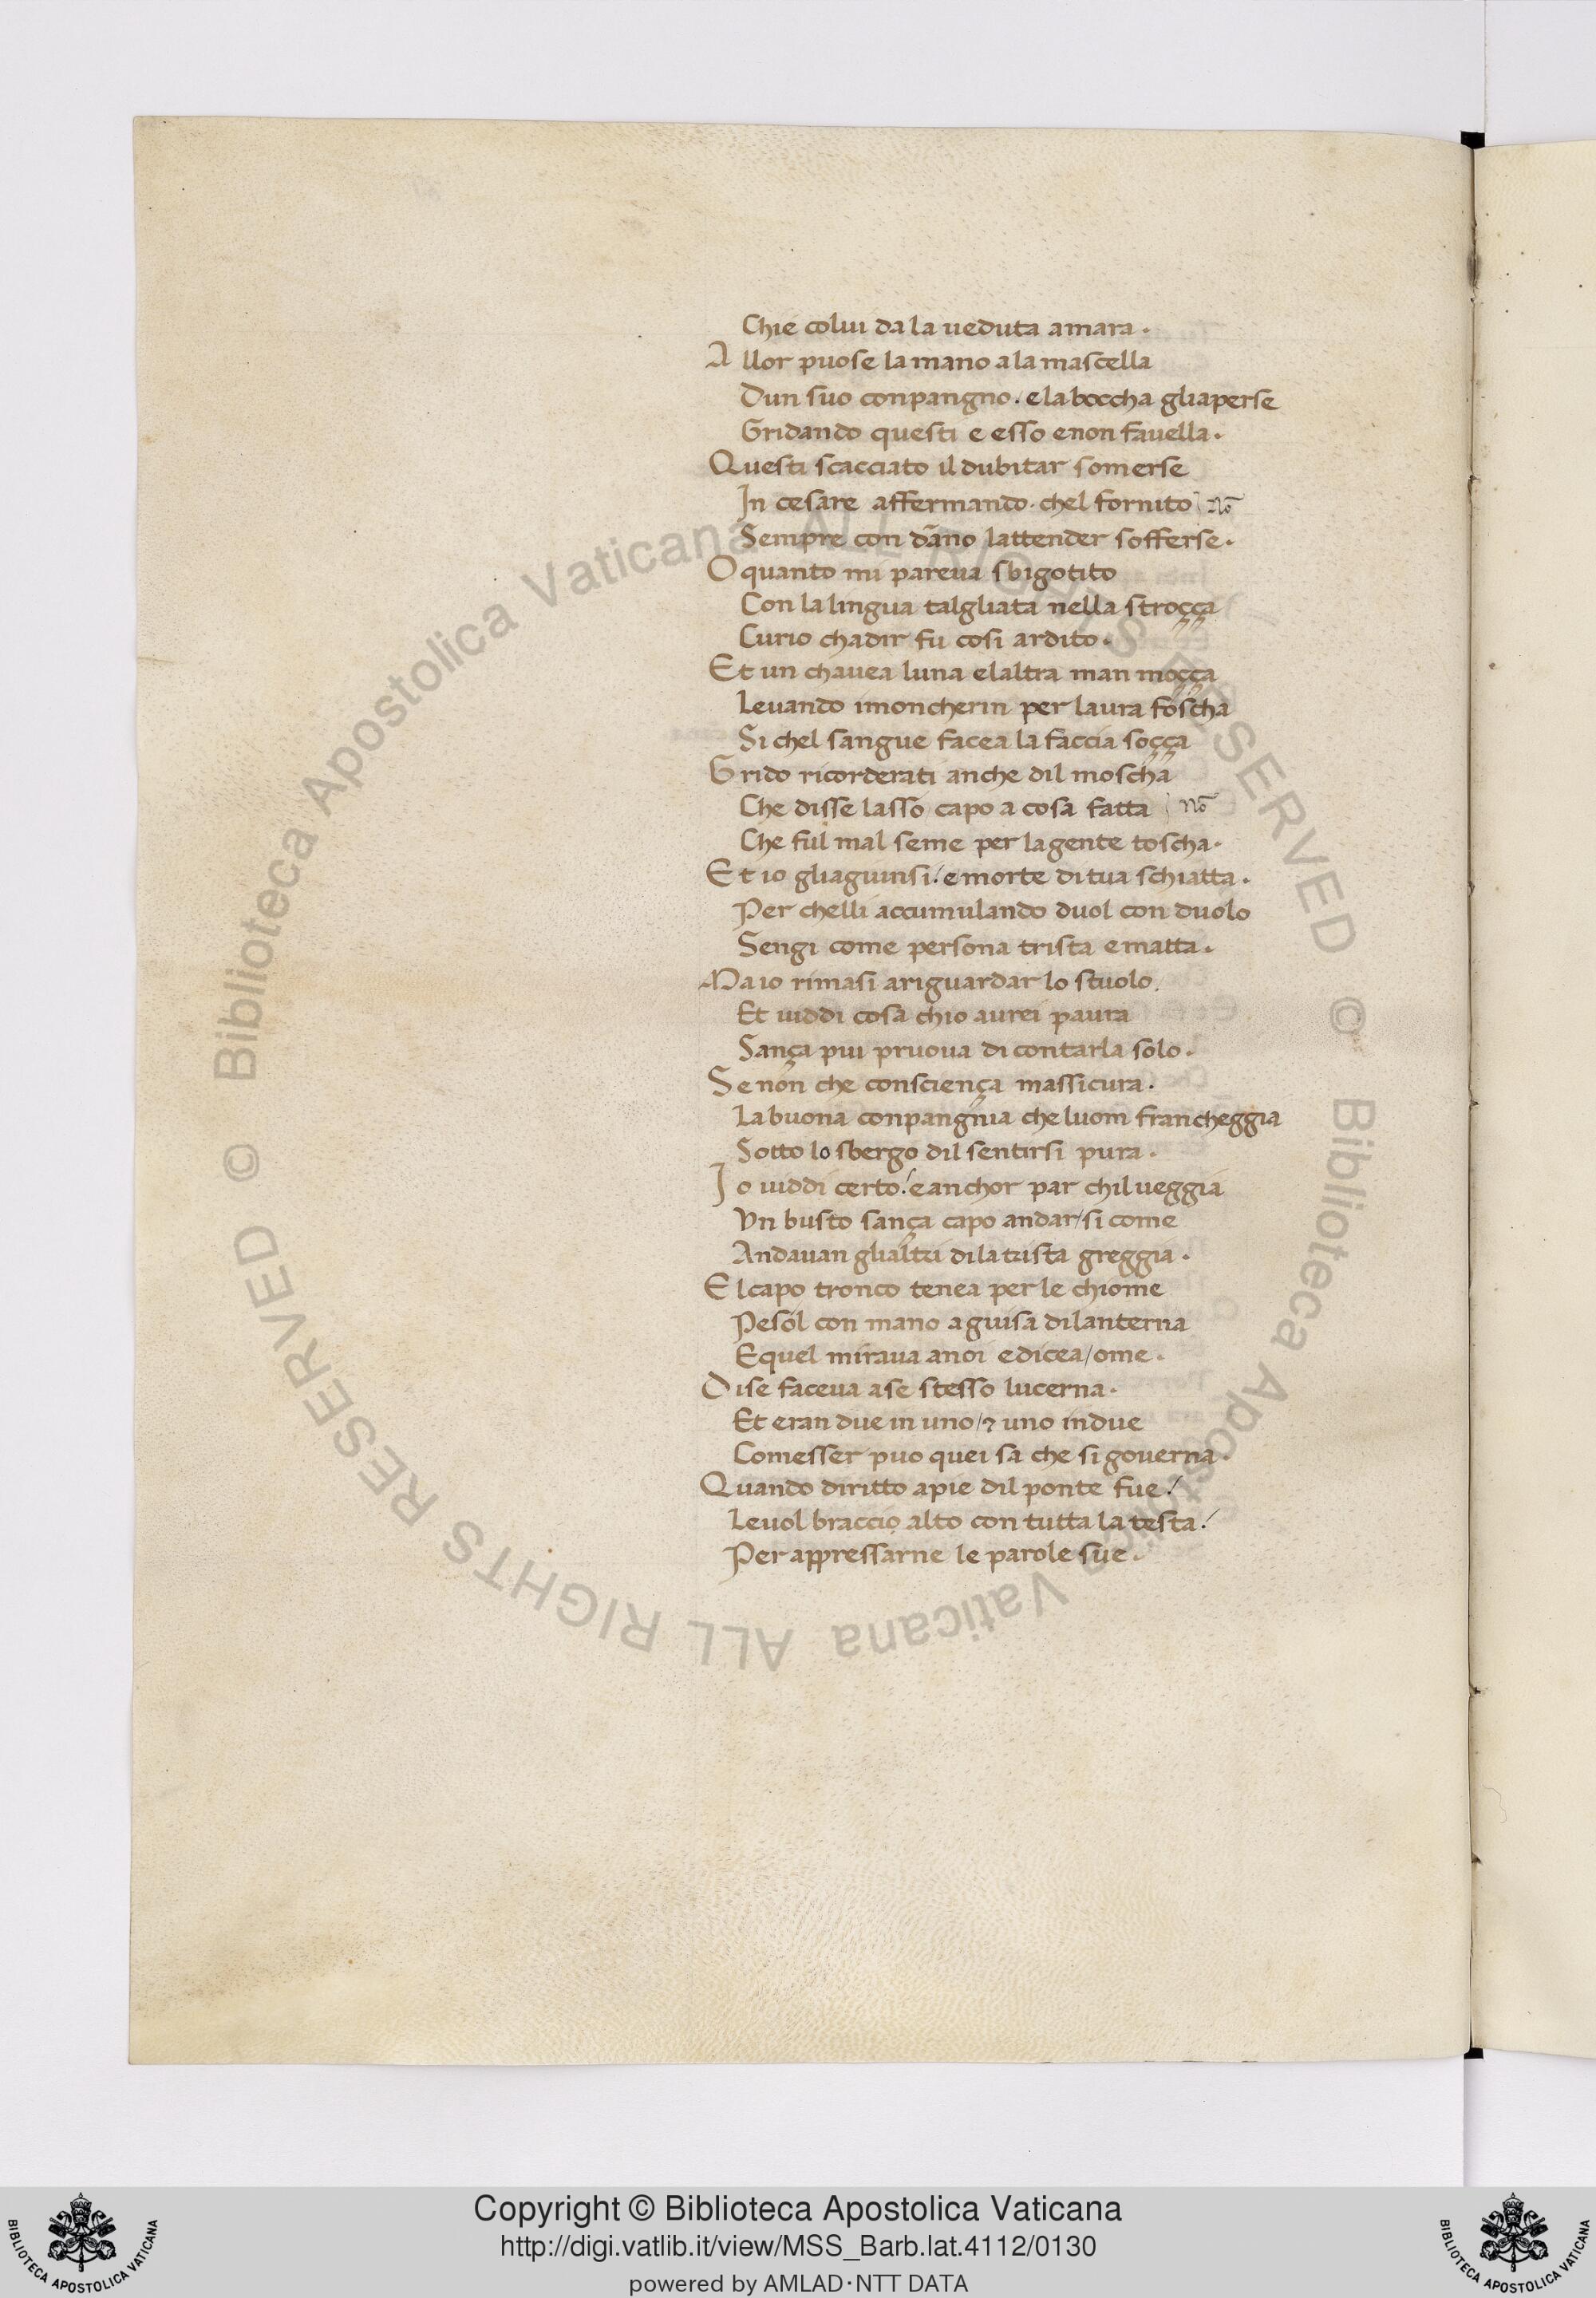 Chie colui da la ueduta amara.
Allor puose la mano a la mascella
Dun suo conpangno. e la boccha gliaperse
Gridando questi e esso enon fauella.
Questi scacciato il dubitar somerse
In cesare affermando. chel fornito No͞
Sempre con da͞no lattender sofferse.
O quanto mi pareua sbigotito
Con la lingua talgliata nella stroçça
Curio chadir fu cosi ardito.
Et un chauea luna elaltra man moçça
Leuando imoncherin per laura foscha
Si chel sangue facea la faccia soçça
Grido ricorderati anche dil moscha
Che disse lasso capo a cosa fatta No͞
Che ful mal seme per la gente toscha.
Et io gliaguinsi / e morte di tua schiatta.
Per chelli accumulando duol con duolo
Sengi come persona trista ematta.
Ma io rimasi ariguardar lo stuolo.
Et uiddi cosa chio aurei paura
Sança piu pruoua di contarla solo.
Se non che consciença massicura.
La buona conpangnia che luom francheggia
Sotto lo sbergo dil sentirsi pura.
Io uiddi certo./ e anchor par chil ueggia
Vn busto sança capo andar/si come
Andauan glialtri di la trista greggia.
El capo tronco tenea per le chiome
Pesol con mano a guisa di lanterna
Equel miraua anoi edicea/ome.
Di se faceua ase stesso lucerna.
Et eran due in uno/⁊ uno indue
Comesser puo quei sa che si gouerna.
Quando diritto apie dil ponte fue./
Leuol braccio alto con tutta la testa./
Per appressarne le parole sue.
© Biblioteca Apostolica Vaticana ALL RIGHTS RESERVED © Biblioteca Apostolica Vaticana ALL RIGHTS RESERVED
Copyright © Biblioteca Apostolica Vaticana
http://digi.vatlib.it/view/MSS_Barb.lat.4112/0130
powered by AMLAD·NTT DATA
BIBLIOTECA APOSTOLICA VATICANA
BIBLIOTECA APOSTOLICA VATICANA